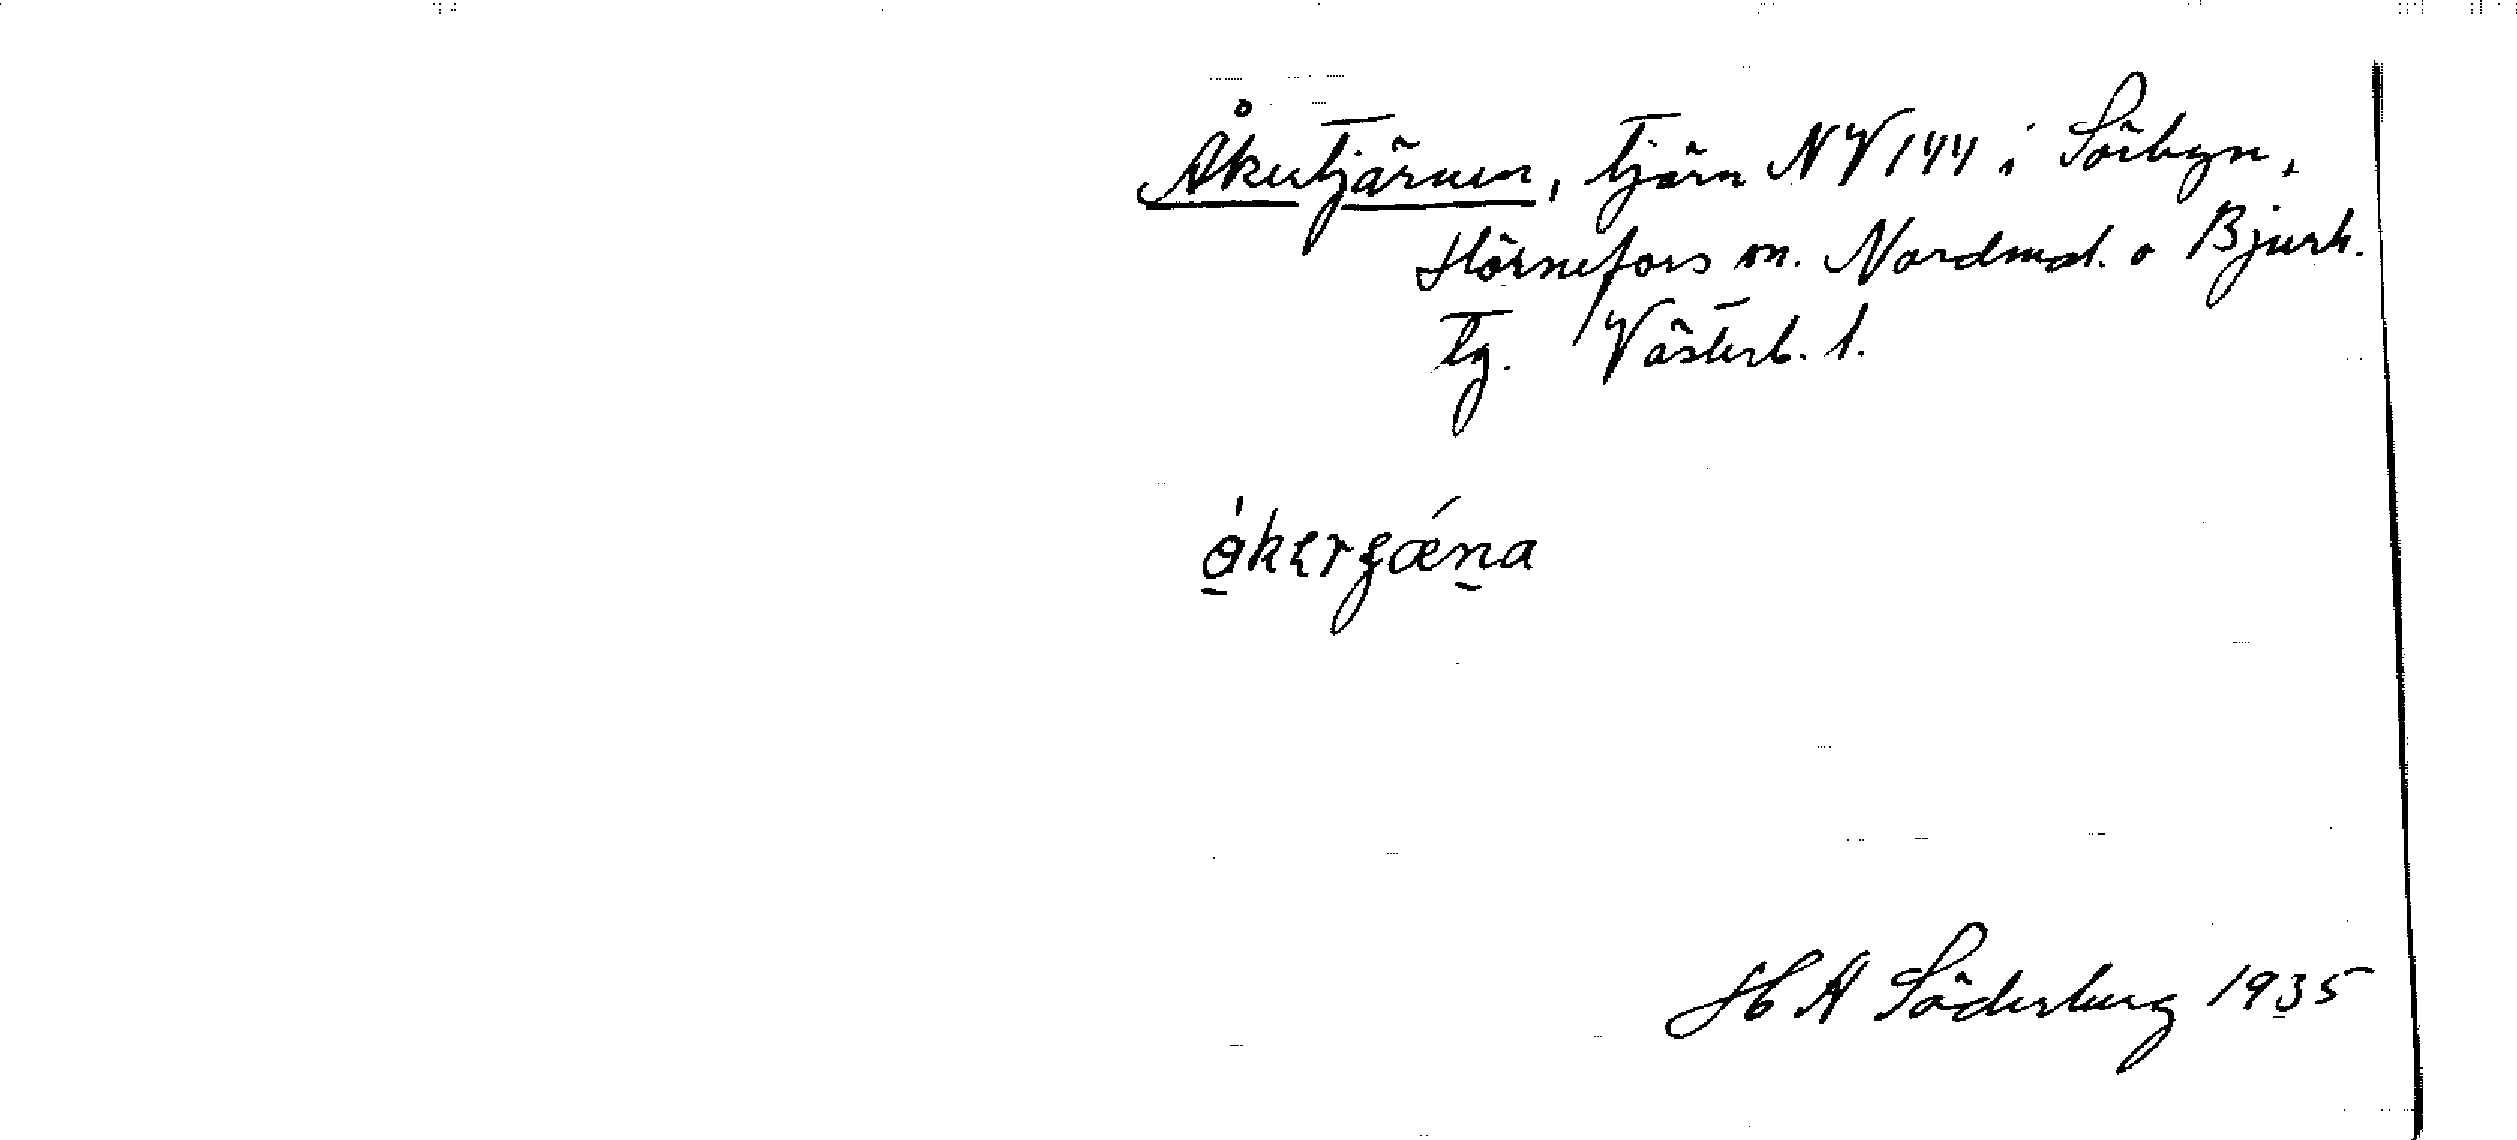 Åkertjärnen, tjärn NV 144 i Sörbyn,
Hörnefors sn. Nordmal. o Bjurh.
tg. Västerb. l.
H A Söderberg 1935